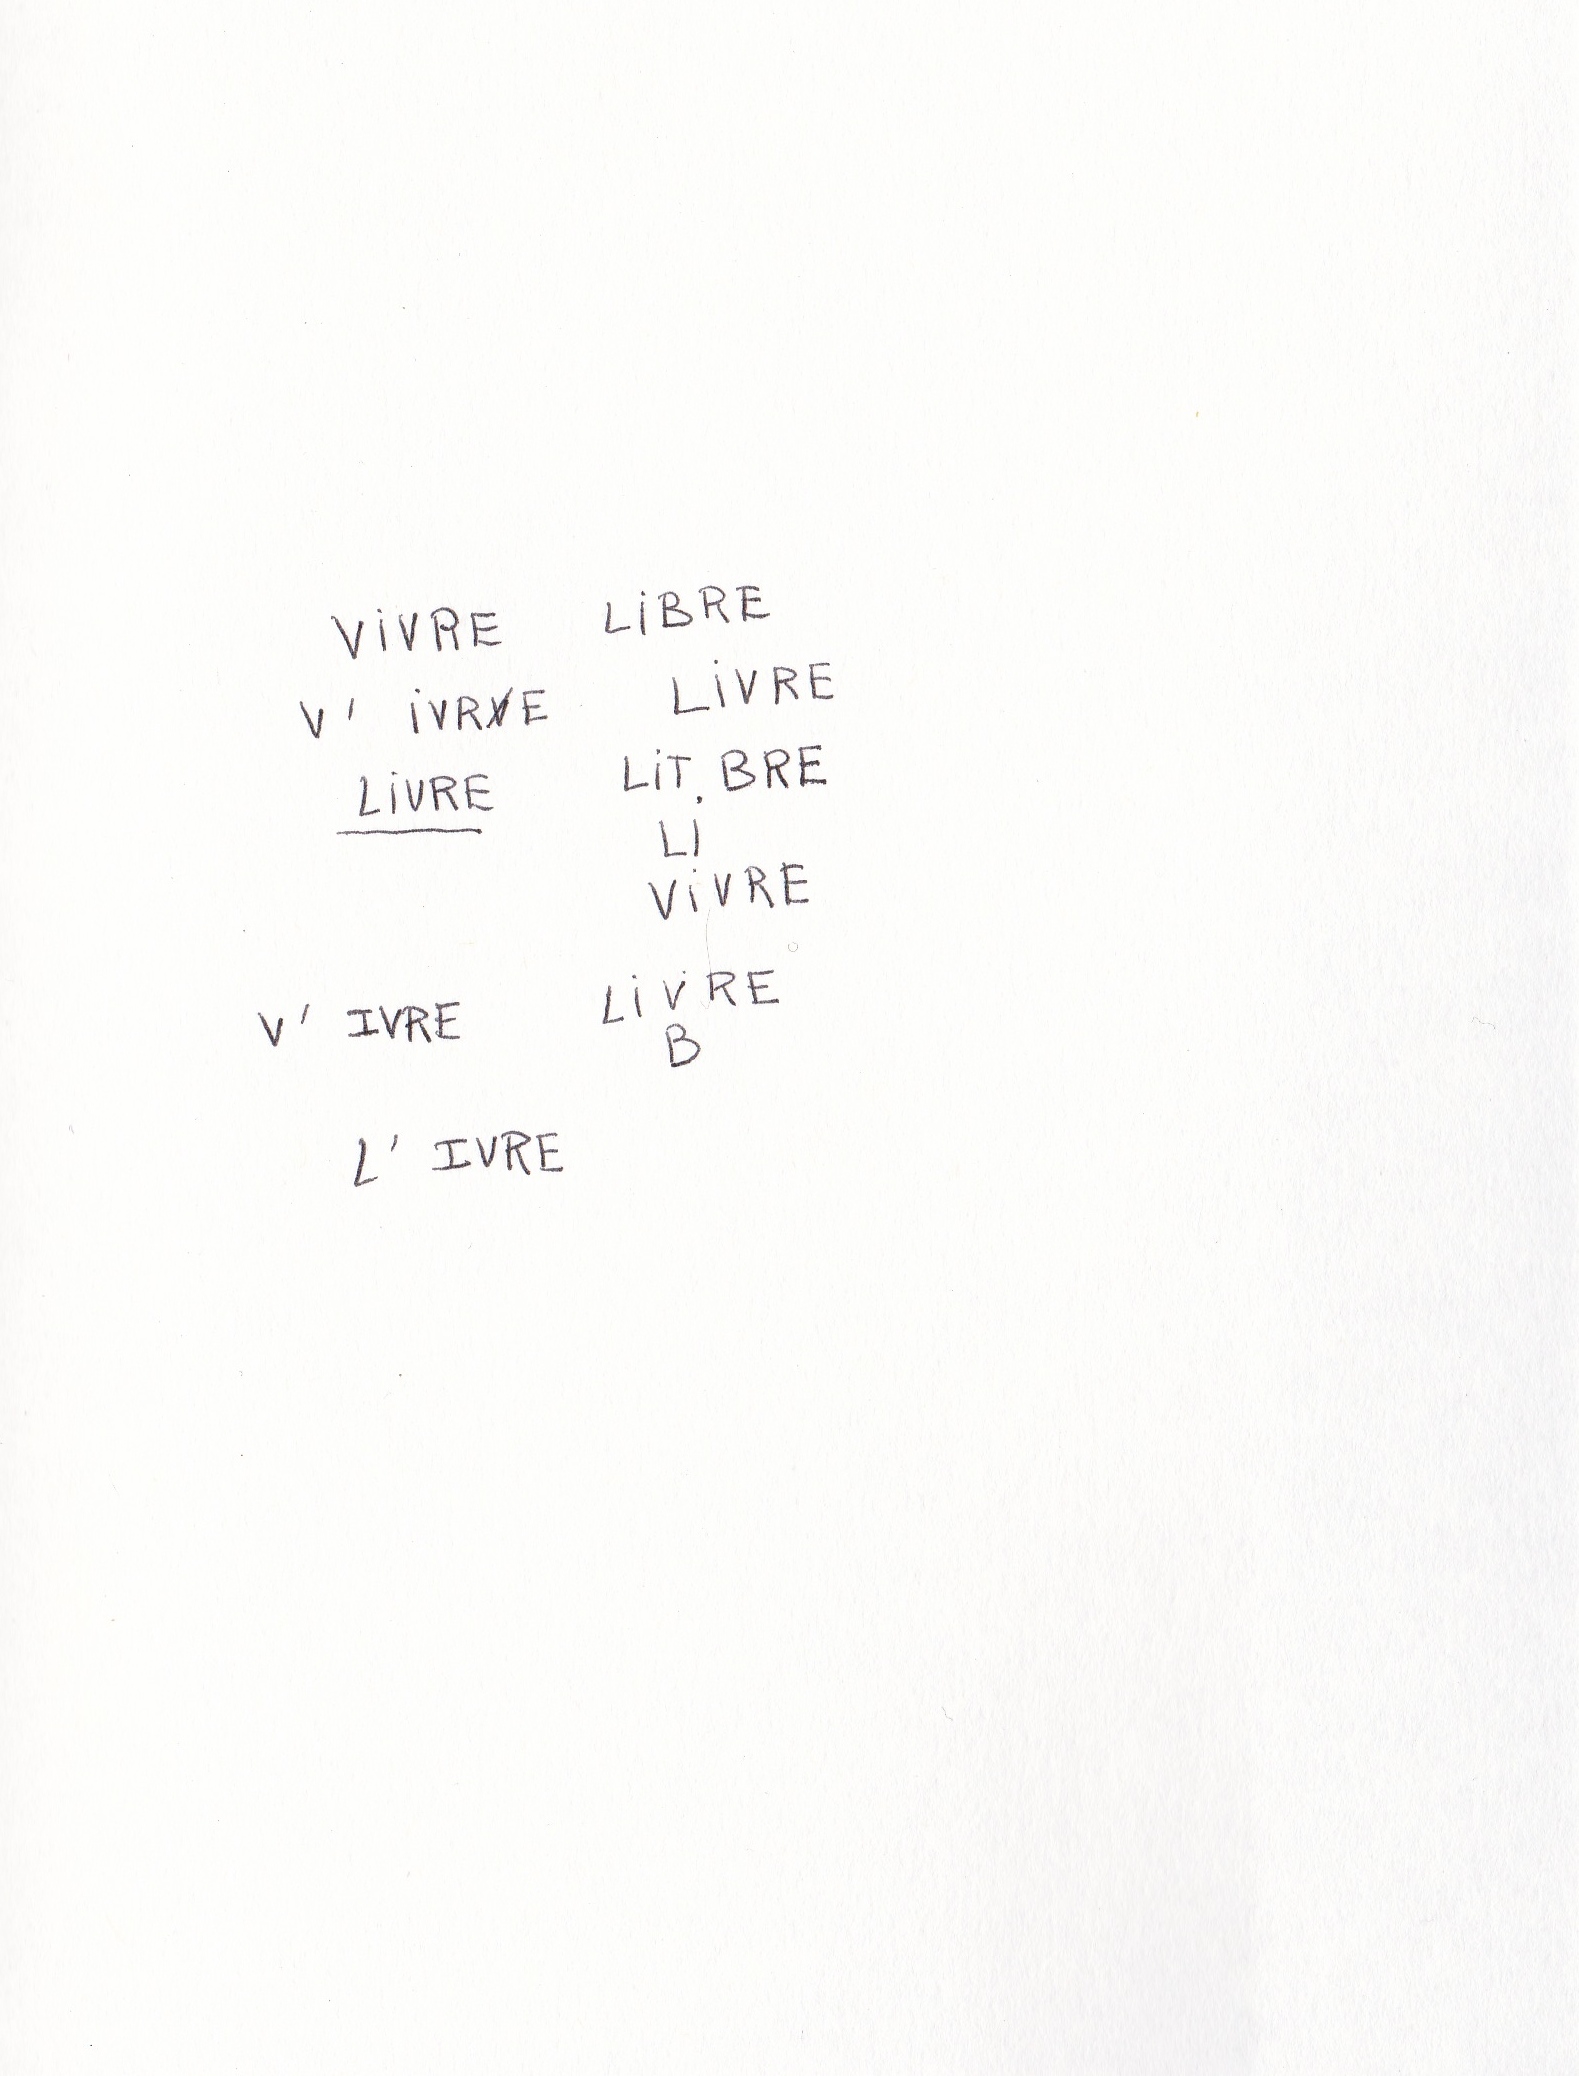 ViVRE LiBRE
V' iVRE LiVRE
LiVRE LiT. BRE
LI
ViVRE
V' IVRE LiVRE
B
L' IVRE